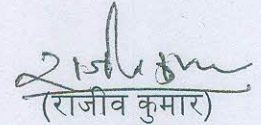 (राजीव कुमार)